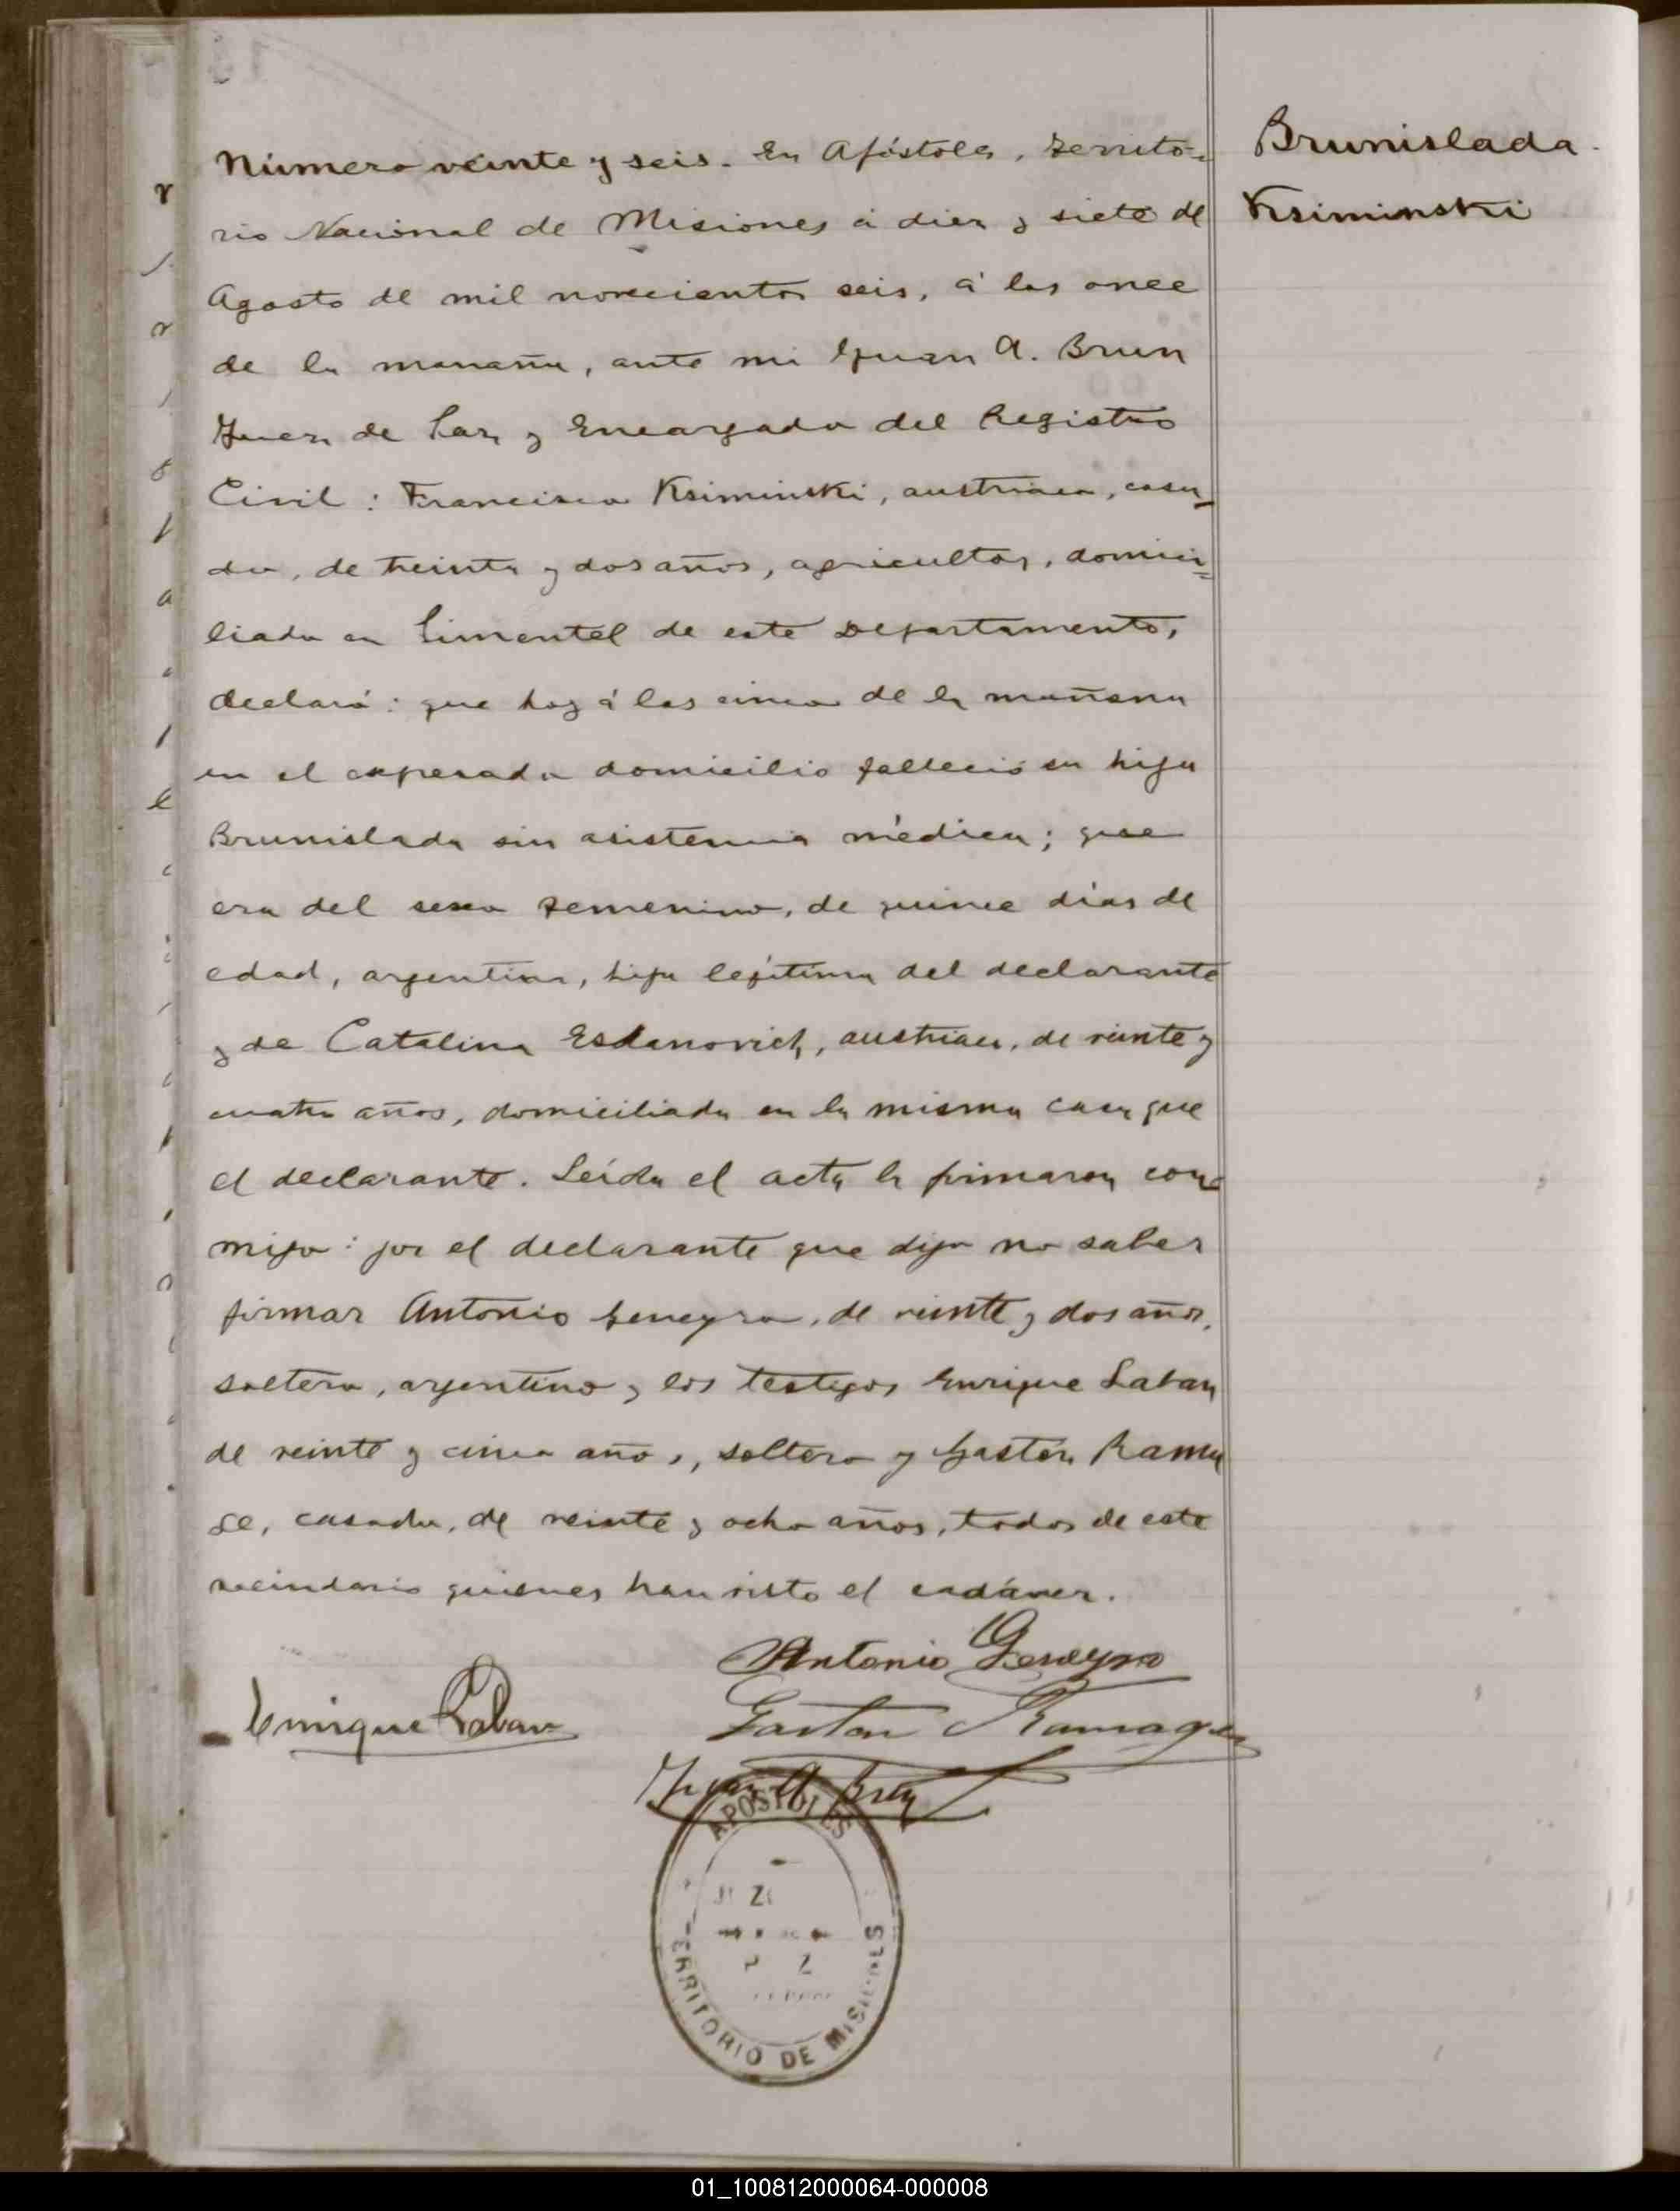 Brunislada
Ksiminski
Número veinte y seis. En Apóstoles, Territo-
rio Nacional de Misiones á diez y siete de
Agosto de mil novecientos seis, á las once
de la manaña, ante mi Juan A. Brun
Juez de Paz y Encargado del Registro
Civil: Francisco Ksiminski, austriaco, casa-
do, de treinta y dos años, agricultor, domici-
liado en Pimentel de este Departamento,
declaró: que hoy á las cinco de la mañana
en el expresado domicilio falleció su hija
Brunislada sin asistencia médica; que
era del sexo femenino, de quince días de
edad, argentina, hija legítima del declarante
y de Catalina Esdanovich, austriaca, de veinte y
cuatro años, domiciliada en la misma casa que
el declarante. Leída el acta la firmaron con-
migo: por el declarante que dijo no saber
firmar Antonio Geneyro, de veinte y dos años,
soltero, argentino y los testigos Enrique Laban
de veinte y cinco años, soltero y Gastón Rama
se, casado, de veinte y ocho años, todos de este
vecindario quienes han visto el cadáver.
Antonio Geneyro
Enrique Laban
Gaston
Juan A. Brun
APOSTOLES
TERRITORIO DE MISIONES
01_100812000064-000008